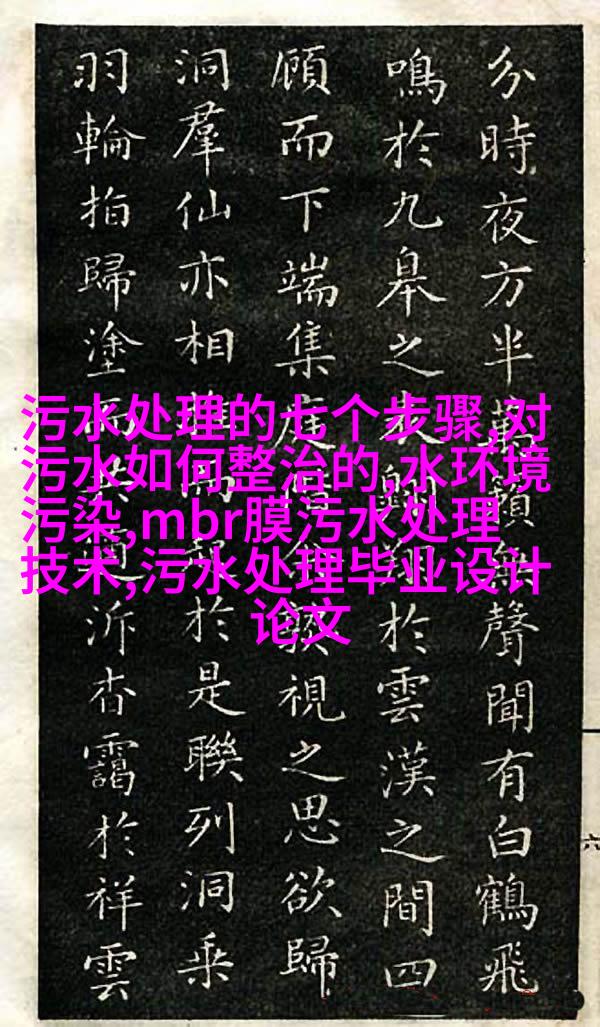 分時夜方半萬籟無聲聞有白鶴飛
鳴於九皋之表翔於雲漢之間四
顧而下端集庭視之思欲歸
洞羣仙亦相於是聯列洞乘
羽輪拍歸塗而泝杳靄於祥雲
六
污水处理的七个步骤,对
污水如何整治的,水环境
污染,mbr膜污水处理
技术,污水处理毕业设计
论文